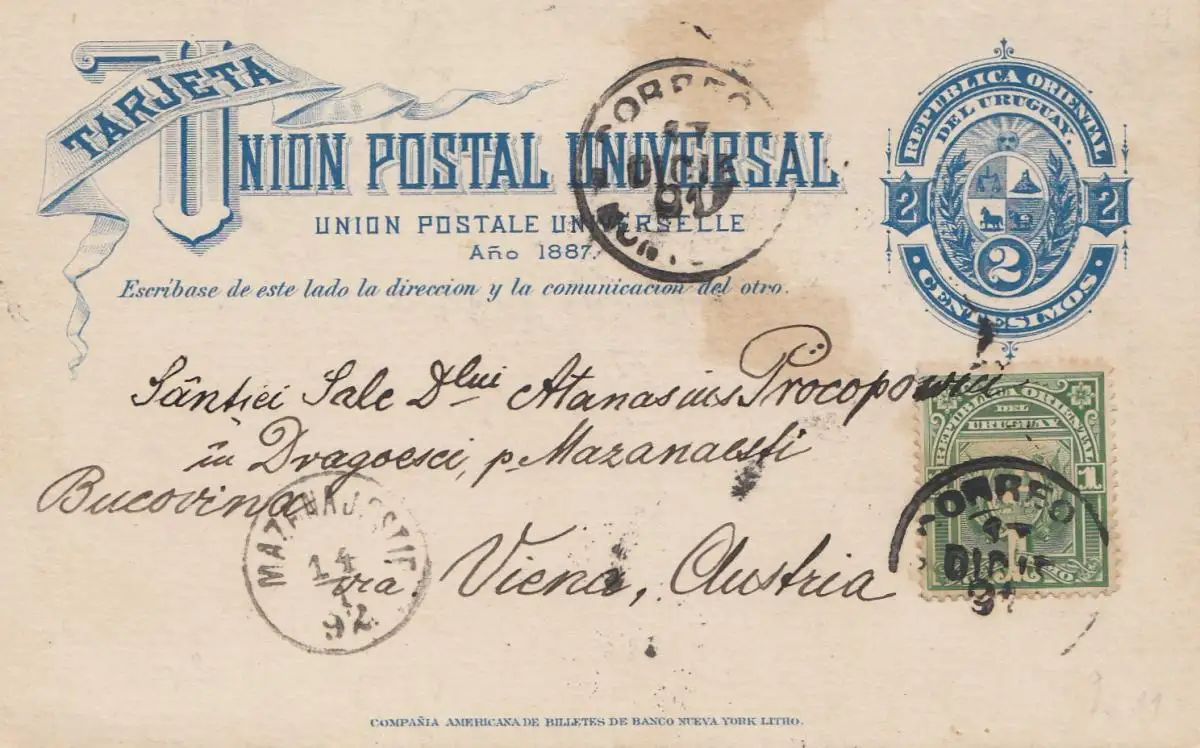 TARJETA
UNION POSTAL UNIVERSAL
UNION POSTALE UNIVERSELLE
Año 1887.
Escríbase de este lado la direccion y la comunicacion del otro.
REPUBLICA ORIENTAL
DEL URUGUAY.
2 2
2
CENTESIMOS
CORREO
17
DICIE
91
Sântiei Sale Dlui Atanasius Procopowici
în Dragoesci, p. Mazanaesti
Bucovina
via Viena, Austria
REPUBLICA ORIENTAL
DEL
URUGUAY
1
CORREO
17
DICIE
91
14
1
92
COMPAÑIA AMERICANA DE BILLETES DE BANCO NUEVA YORK LITHO.